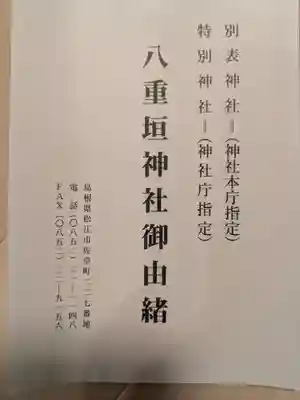 別表神社―(神社本庁指定)
特別神社―(神社庁指定)
八重垣神社御由緒
島根県松江市佐草町二二七番地
電話〇八五二―二一―一一四八
FAX〇八五二―二一―九一五八